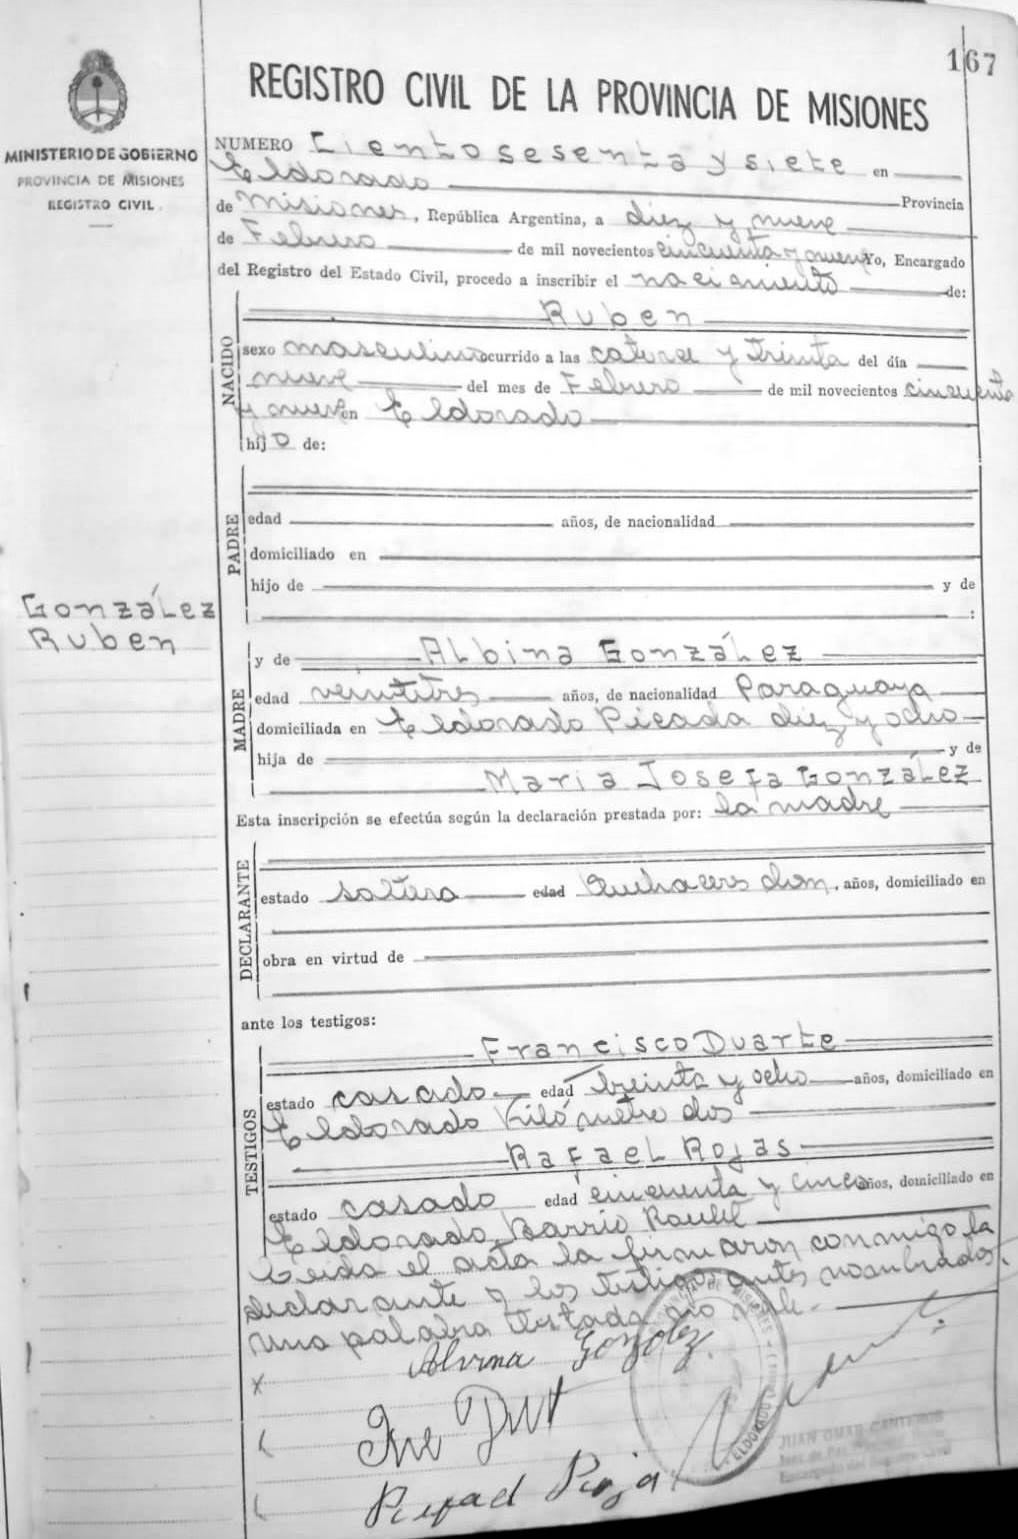 167
REGISTRO CIVIL DE LA PROVINCIA DE MISIONES
MINISTERIO DE GOBIERNO
PROVINCIA DE MISIONES
REGISTRO CIVIL
NUMERO Ciento sesenta y siete en
Eldorado Provincia
de Misiones, República Argentina, a diez y nueve
de Febrero de mil novecientos cincuenta y nueve Yo, Encargado
del Registro del Estado Civil, procedo a inscribir el nacimiento de:
NACIDO
Ruben
sexo masculino ocurrido a las catorce y treinta del día
nueve del mes de Febrero de mil novecientos cincuenta
y nueve en Eldorado
hijo de:
PADRE
edad años, de nacionalidad
domiciliado en
hijo de y de
:
González
Ruben
MADRE
y de Albina González
edad veintitres años, de nacionalidad Paraguaya
domiciliada en Eldorado Picada diez y ocho
hija de y de
Maria Josefa González
Esta inscripción se efectúa según la declaración prestada por: la madre
DECLARANTE
estado soltera edad Quehaceres dom, años, domiciliado en
obra en virtud de
ante los testigos:
TESTIGOS
Francisco Duarte
estado casado edad treinta y ocho años, domiciliado en
Eldorado Kilómetro dos
Rafael Rojas
estado casado edad cincuenta y cinco años, domiciliado en
Eldorado, Barrio
Leida el acta la firmaron conmigo la
declarante y los testigos antes nombrados.
una palabra testada no vale.
Alvina Gonzalez.
Rafael Roja
JUAN OMAR CANTEROS
Encargado del Registro Civil